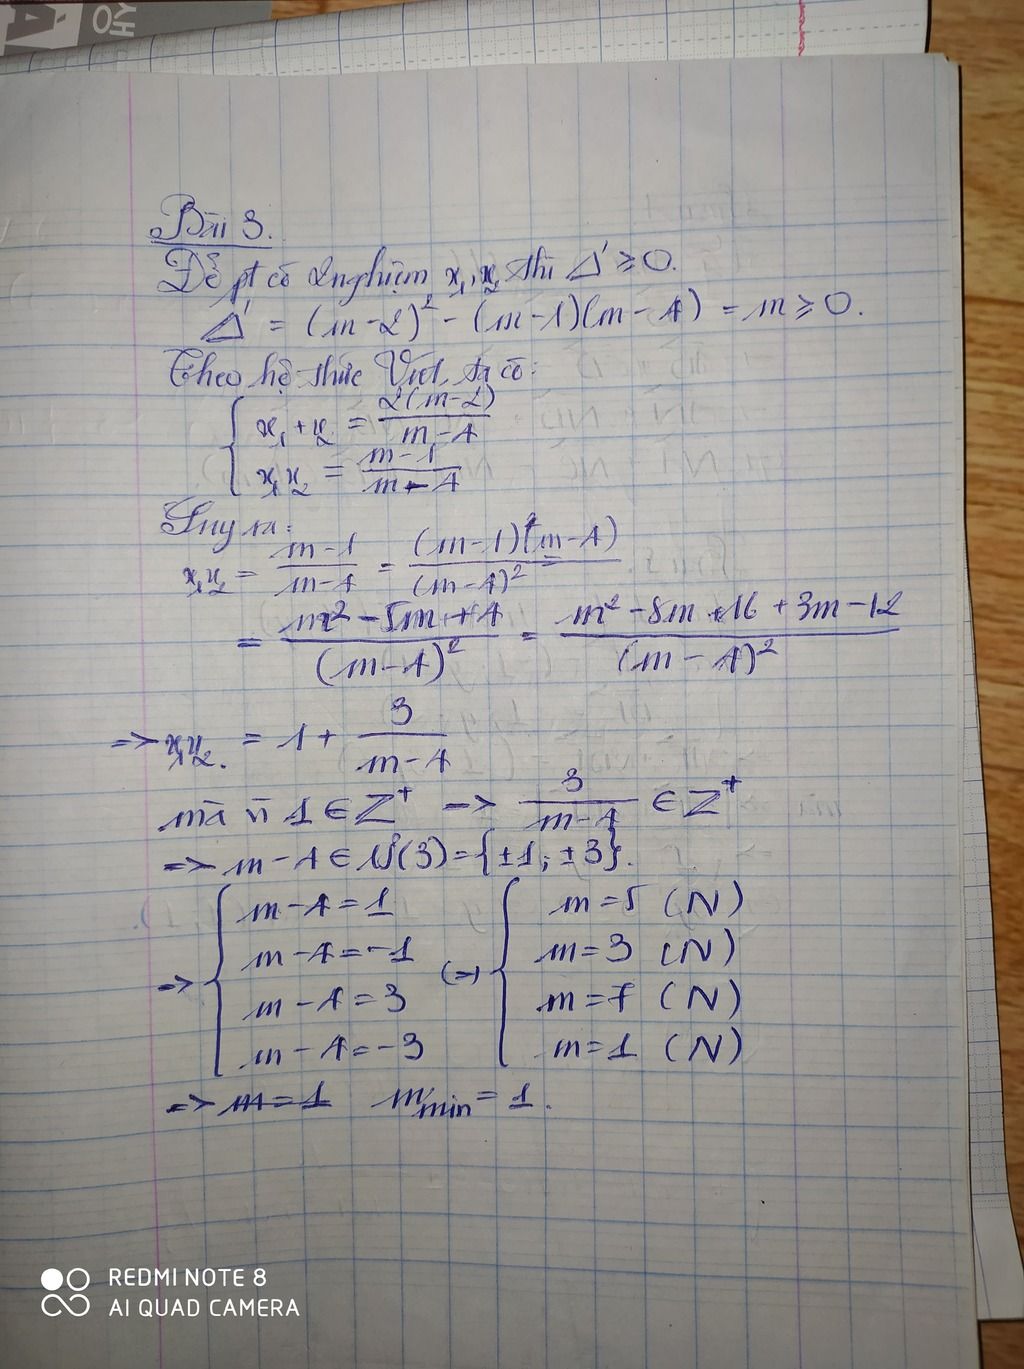 A
OHY
Bài 3.
Để pt có 2 nghiệm x₁, x₂ thì Δ' ≥ 0.
Δ' = (m-2)² - (m-1)(m-4) = m ≥ 0.
Theo hệ thức Viet, ta có:
x₁ + x₂ = 2(m-2)/(m-4)
x₁x₂ = (m-1)/(m-4)
Suy ra:
x₁x₂ = (m-1)/(m-4) = (m-1)(m-4)/(m-4)²
= (m² - 5m + 4)/(m-4)² = (m² - 8m + 16 + 3m - 12)/(m-4)²
=> x₁x₂. = 1 + 3/(m-4)
mà vì 1 ∈ Z⁺ -> 3/(m-4) ∈ Z⁺
=> m-4 ∈ Ư(3) = {±1; ±3}.
m-4 = 1 m = 5 (N)
m-4 = -1 m = 3 (N)
=> (=)
m-4 = 3 m = 7 (N)
m-4 = -3 m = 1 (N)
=> m = 1 m min = 1.
REDMI NOTE 8
AI QUAD CAMERA